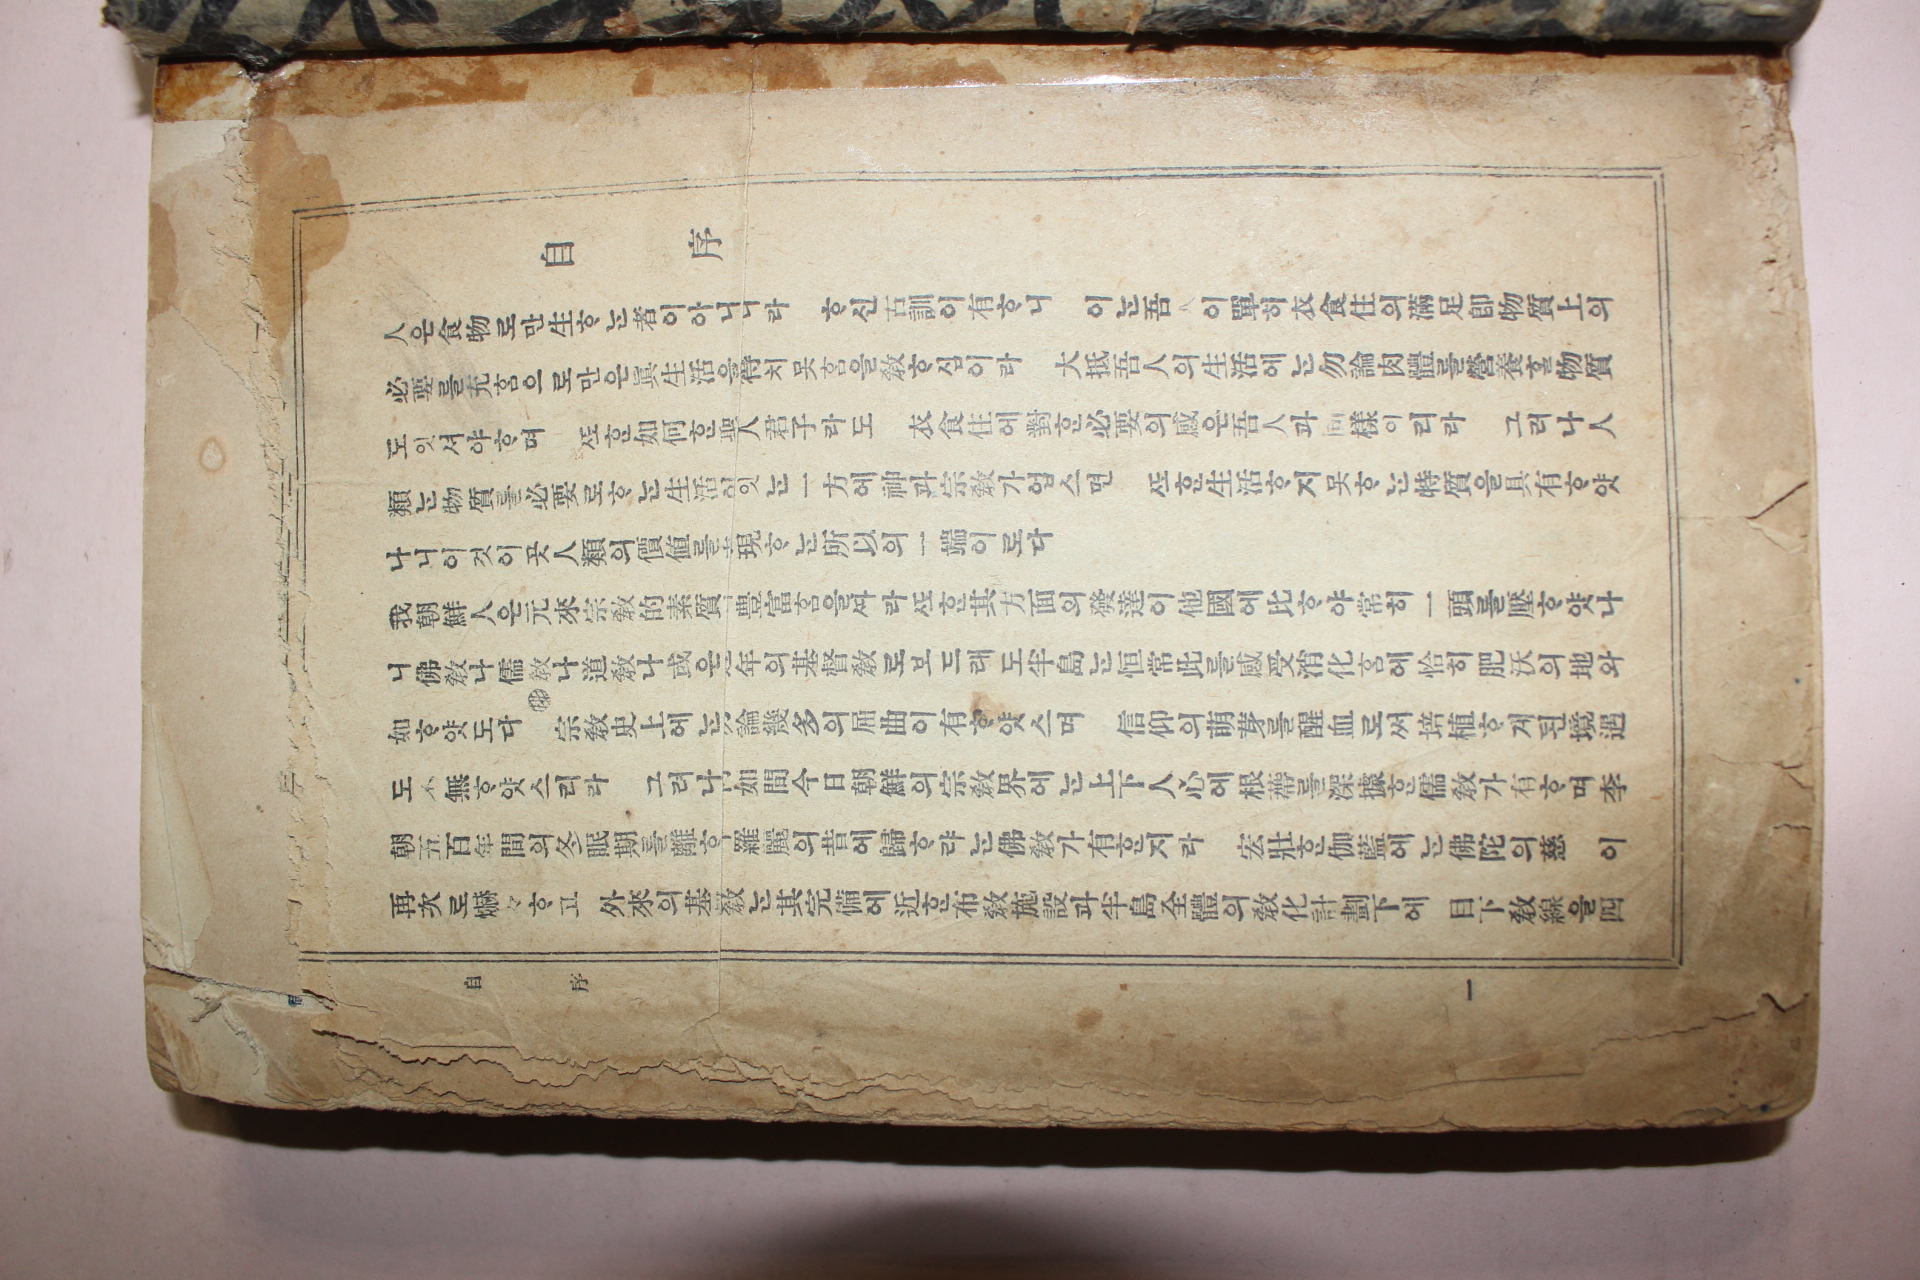 自序
人은食物로만生ᄒᆞᄂᆞᆫ者이아니니라 ᄒᆞ신古訓이有ᄒᆞ니 이ᄂᆞᆫ吾人이單히衣食住의滿足卽物質上의
必要를充홈으로만은眞生活을得치못홈을敎ᄒᆞ심이라 大抵吾人의生活에ᄂᆞᆫ勿論肉體를營養ᄒᆞᆯ物質
도잇셔야ᄒᆞ며 ᄯᅩᄒᆞᆫ如何ᄒᆞᆫ聖人君子라도 衣食住에對ᄒᆞᆫ必要의感은吾人과同樣이리라 그러나人
類ᄂᆞᆫ物質를必要로ᄒᆞᄂᆞᆫ生活이잇ᄂᆞᆫ一方에神과宗敎가업스면 ᄯᅩᄒᆞᆫ生活ᄒᆞ지못ᄒᆞᄂᆞᆫ特質을具有ᄒᆞ얏
나니이것이곳人類의價値를表現ᄒᆞᄂᆞᆫ所以의一端이로다
我朝鮮人은元來宗敎的素質이豊富홈을ᄯᅡ라ᄯᅩᄒᆞᆫ其方面의發達이他國에比ᄒᆞ야常히一頭를壓ᄒᆞ얏나
니佛敎나儒敎나道敎나或은近年의基督敎로보드래도半島ᄂᆞᆫ恒常此를感受消化홈에恰히肥沃의地와
如ᄒᆞ얏도다 宗敎史上에ᄂᆞᆫ勿論幾多의屈曲이有ᄒᆞ얏스며 信仰의萌芽를醒血로써培植ᄒᆞ게된境遇
도不無ᄒᆞ얏스리라 그러나如間今日朝鮮의宗敎界에ᄂᆞᆫ上下人心에根蔕를深據ᄒᆞᆫ儒敎가有ᄒᆞ며李
朝五百年間의冬眠期를離ᄒᆞ야羅麗의昔에歸ᄒᆞ랴ᄂᆞᆫ佛敎가有ᄒᆞᆫ지라 宏壯ᄒᆞᆫ伽藍에ᄂᆞᆫ佛陀의慈 이
再次로爀々ᄒᆞ고 外來의基敎ᄂᆞᆫ其完備에近ᄒᆞᆫ布敎施設과半島全體의敎化計劃下에 目下敎線을四
自序
一